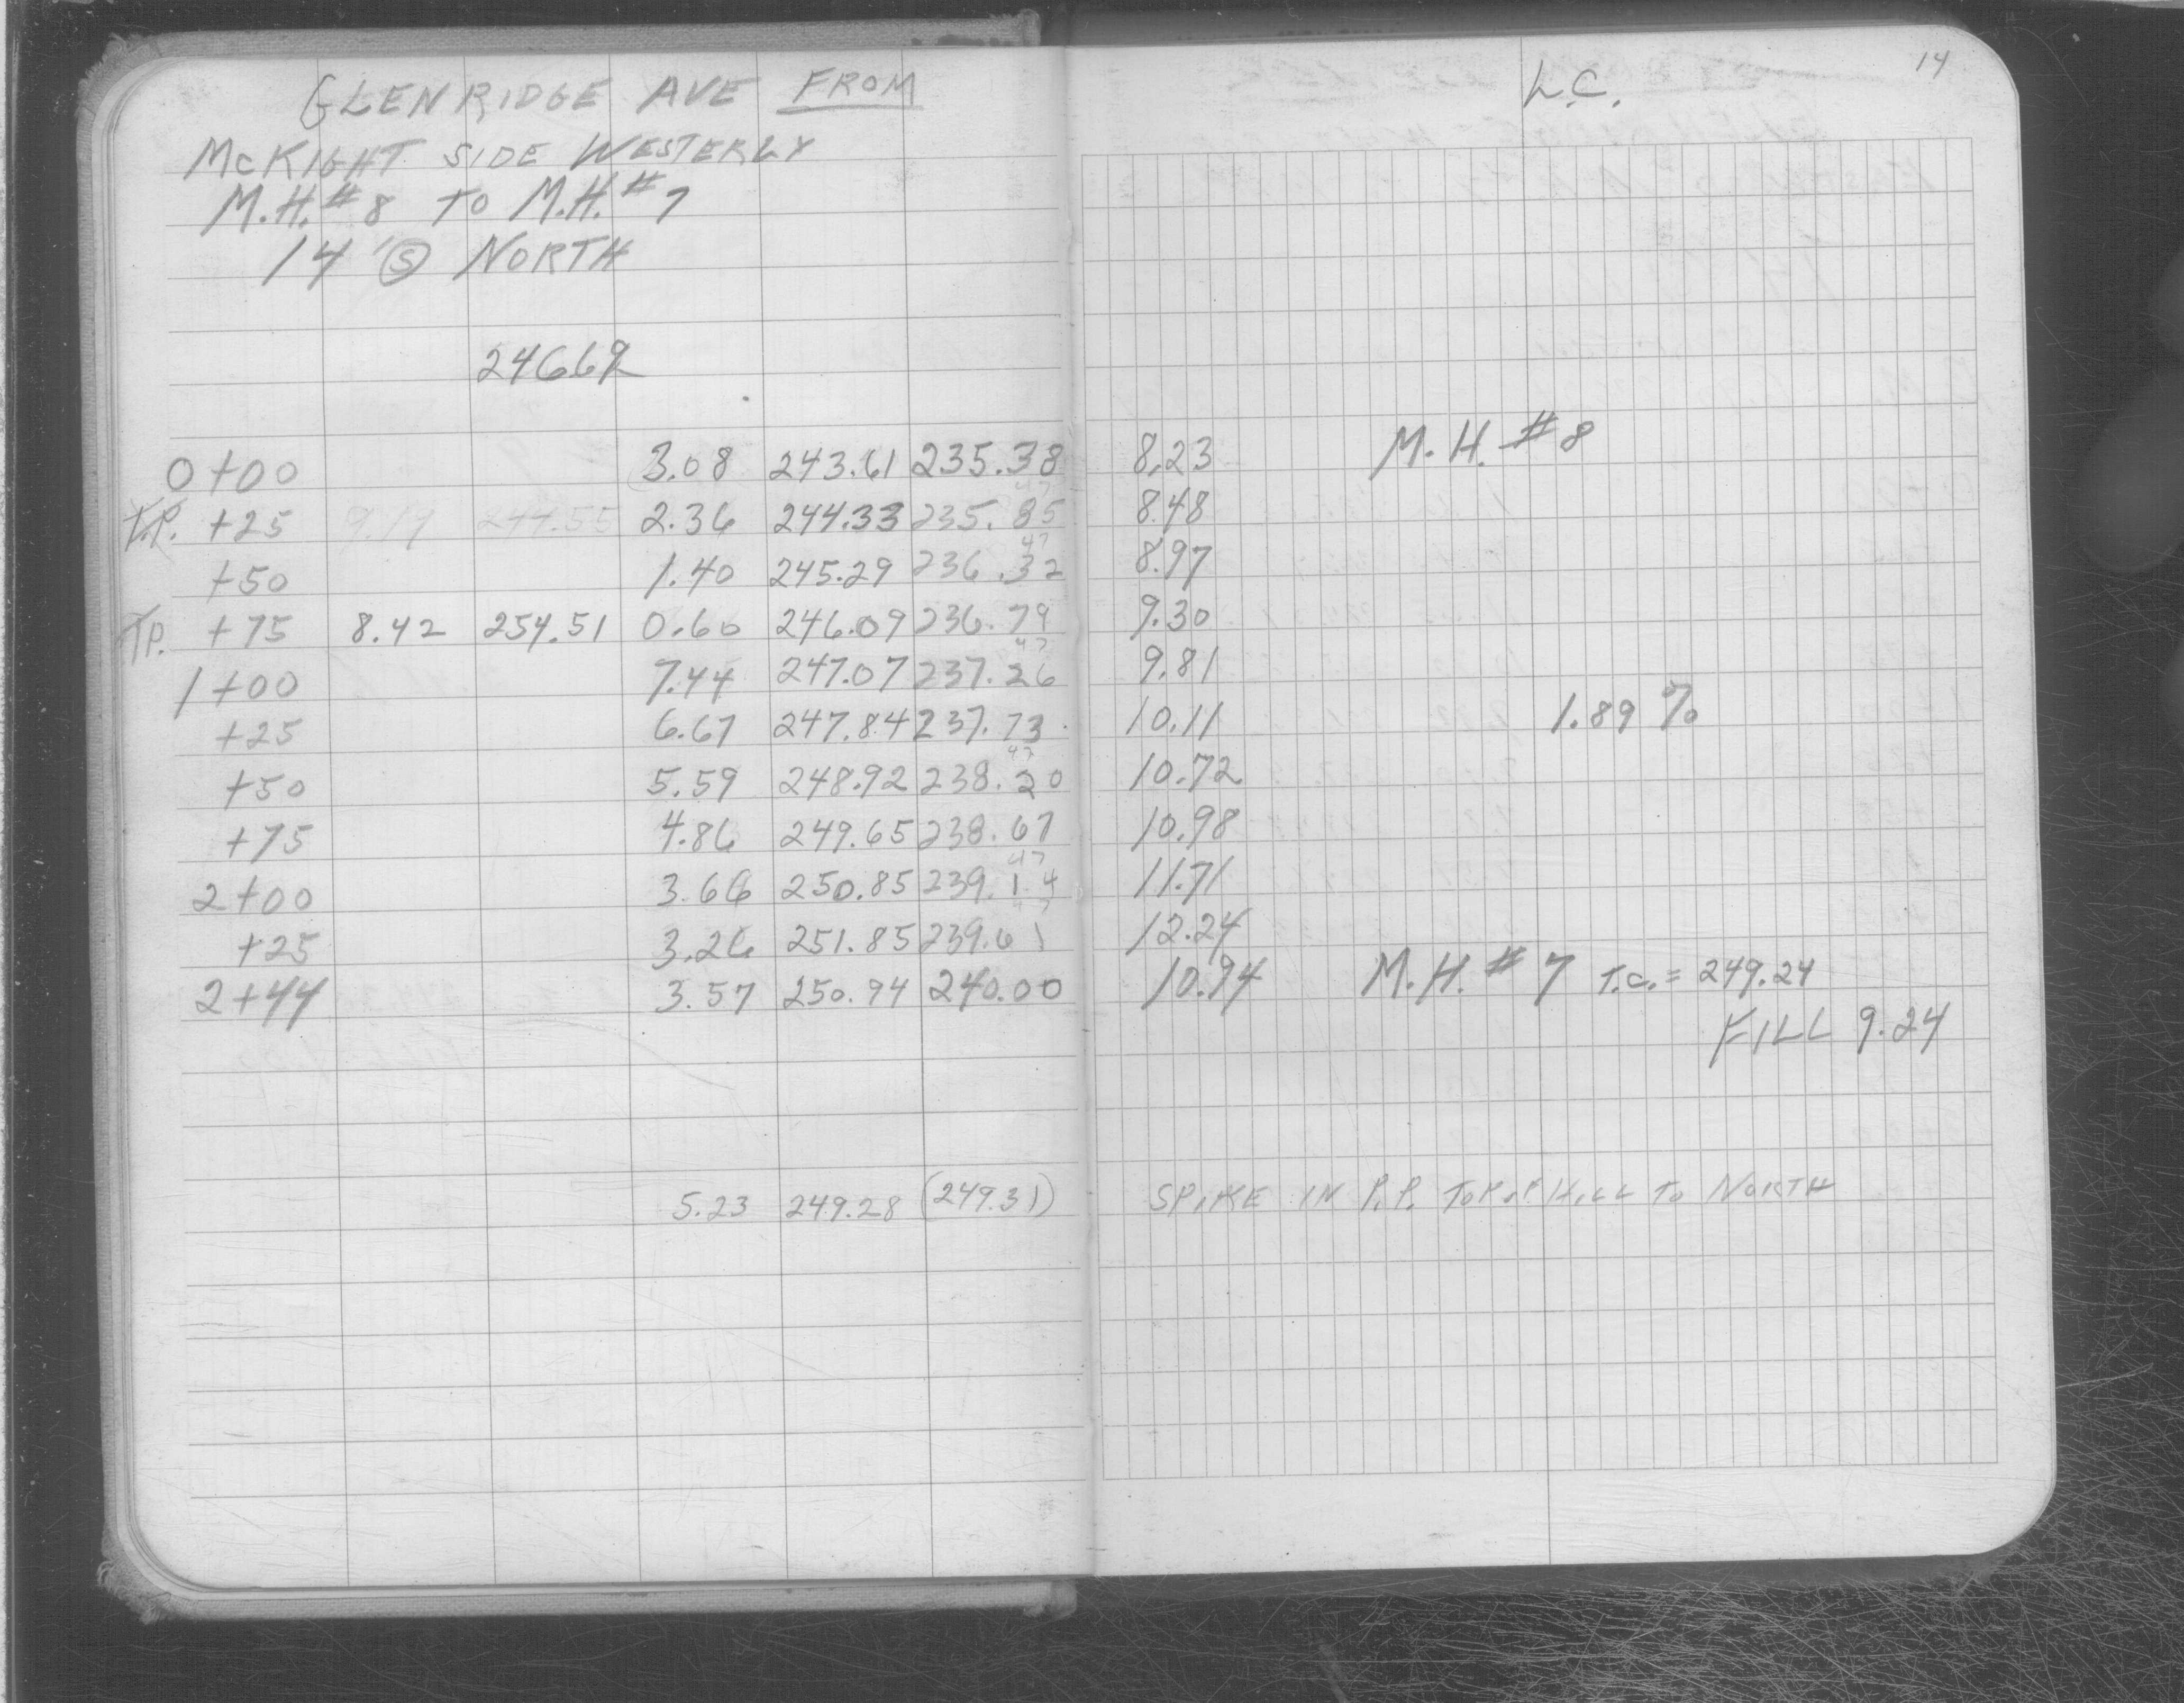 14
GLENRIDGE AVE FROM L.C.
McKIGHT SIDE WESTERLY
M.H.#8 TO M.H.#7
14' Ⓢ NORTH
246.69
0+00 3.08 243.61 235.38 8.23 M.H.#8
T.P. +25 9.19 244.55 2.36 244.33 235.85 8.48
47
+50 1.40 245.29 236.32 8.97
T.P. +75 8.42 254.51 0.60 246.09 236.79 9.30
47
1+00 7.44 247.07 237.26 9.81
+25 6.67 247.84 237.73 10.11 1.89%
47
+50 5.59 248.92 238.20 10.72
+75 4.86 249.65 238.67 10.98
47
2+00 3.66 250.85 239.14 11.71
+25 3.26 251.85 239.61 12.24
2+44 3.57 250.94 240.00 10.94 M.H.#7 T.C.=249.24
FILL 9.24
5.23 249.28 (249.31) SPIKE IN P.P. TOP OF HILL TO NORTH